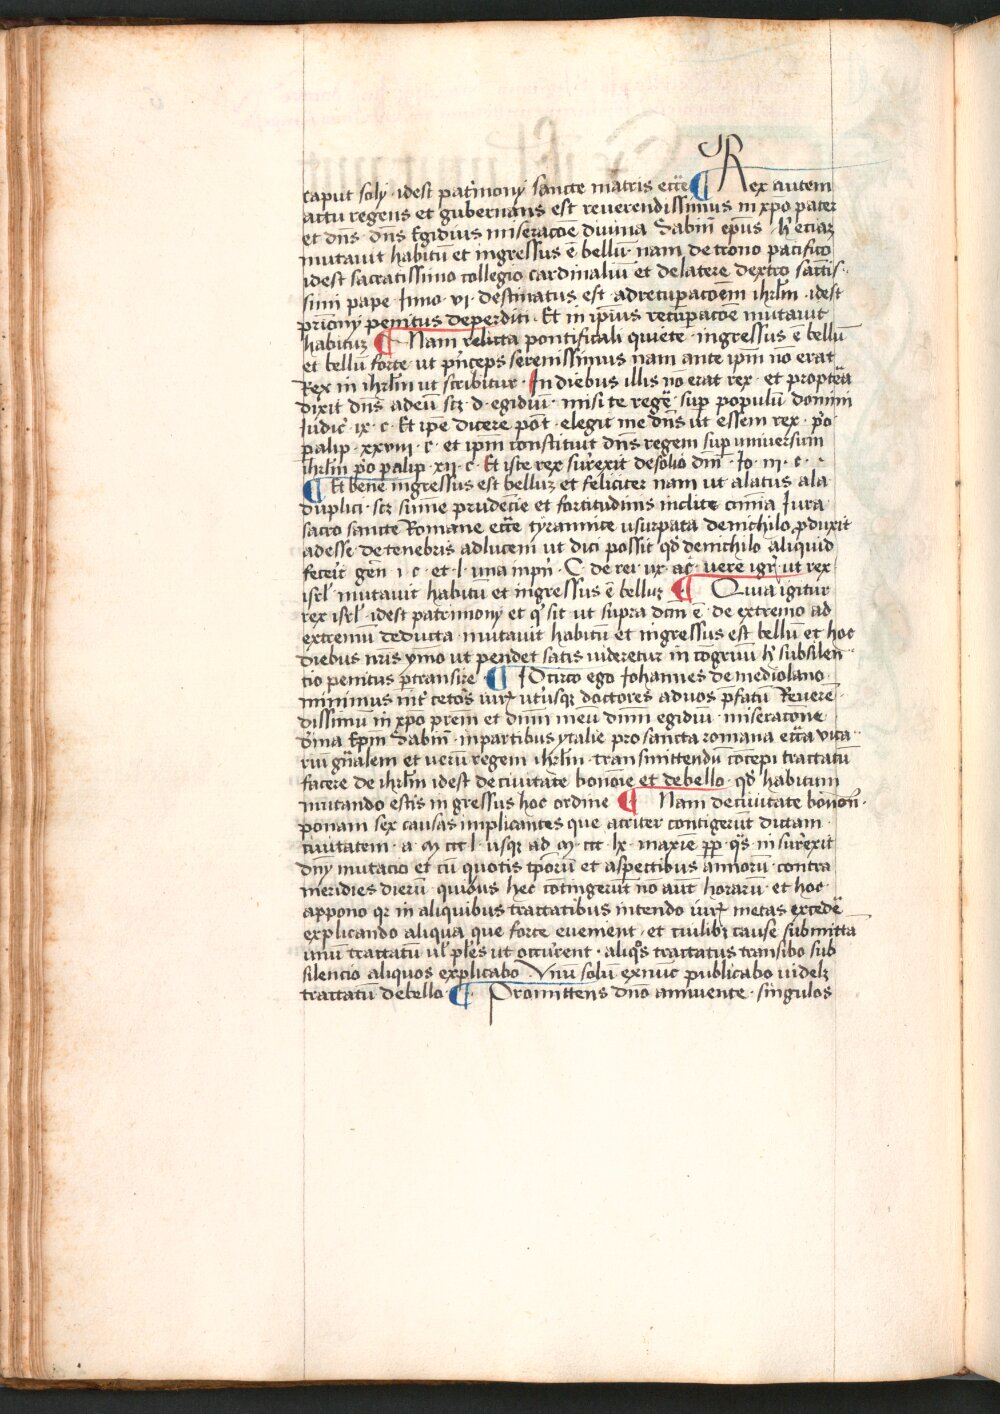 caput soly · idest pat̄mony sancte matris ecc̄e ¶ Rex autem
actu regens et gubernans est reuerendissimus in xp̄o pater
et dn̄s · dn̄s Egidius miserac̄oe diuina Sabin̄ ep̄us · h̄ etiaz
mutauit habitū et ingressus ē bellū · nam de trono pacifico
idest sacratissimo collegio cardinaliū et de latere dextro sanctis·
simi pape Inno · vi · destinatus est · ad recup̄ac̄oem ihrl̄m · idest
p̄rimony penitus deperditi · Et in ip̄ius recup̄ac̄oe mutauit
habituz ¶ Nam relicta pontificali quiete · ingressus ē bellū
et bellū forte · ut p̄nceps serenissimus nam ante ip̄m nō erat
Rex in ihrl̄m ut scribitur · In diebus illis nō erat rex · et propt̄ea
dixit dn̄s ad eū scz · d · egidiū · misi te regē · sup̄ populū domini
Iudic̄ · ix · c · Et ip̄e dicere pōt · elegit me dn̄s ut essem rex · p̄o
palip · xxviii · c · et ip̄m constituit dn̄s regem sup̄ uniuersum
ihrl̄m p̄o palip · xii · c · Et iste rex surexit de solio dn̄i · Io · iii · c ·
¶ Et bene ingressus est belluz et feliciter nam ut alatus ala
duplici · scz sum̄e prudenc̄ie et fortitudinis inclite om̄ia Iura
sacro sancte Romane ecc̄e tyrannice usurpata de nichilo p̄duxit
ad esse · de tenebris ad lucem ut dici possit qd̄ de nichilo aliquid
fecerit gen̄ · i · c · et · l · una in p̄n̄ · C · de rei ux · ac̄ · vere igr̄ ut rex
isrl̄ · mutauit habitū et ingressus ē belluz ¶ Quia igitur
rex isrl̄ · idest patrimony et q̄ sit ut supra dc̄m ē · de extremo ad
extremū deducta · mutauit habitū et ingressus est bellū et hoc
diebus nr̄is ymo ut pendet satis uideretur in cōgruū h̄ sub silen·
tio penitus p̄transire ¶ Idcirco ego Iohannes de mediolano ·
minimus int̄ cetōs iurꝝ utiusqꝫ doctores · ad uos p̄fatū Reuerē·
dissimū in xp̄o prem̄ et dnm̄ meū dn̄m egidiū · miserac̄one
diīna Ep̄m Sabin̄ · in partibus ytalie pro sancta romana ecc̄a vica·
riū gn̄alem et uerū regem ihrl̄m · transmittendū cōcepi tractatū
facere de ihrl̄m idest de ciuitate bononie et de bello · qd̄ habitum
mutando estis in gressus hoc ordine ¶ Nam de ciuitate bonon̄ ·
ponam sex causas implicantes que acriter contigerūt dictam ·
ciuitatem · a · M ccc l · usqꝫ ad · M · ccc · lx · maxīe p̄p̄ · q̄s insurexit
dn̄y mutacio et cū quotis tp̄orū et aspectibus annorū · contra
meridies dierū · quibus hec cōtingerūt nō aūt horarū · et hoc·
appono qr̄ in aliquibus tractatibus intendo iurꝝ metas excedē
explicando aliqua que forte euement · et cuilibꝫ cause submittā
unū tractatū ul̄ pl̄es ut occur̄ent · aliqōs tractatus transibo sub
silencio aliquos explicabo Vnū solū ex nunc publicabo uidelꝫ
tractatū de bello ¶ Promittens dn̄o annuente · singulos